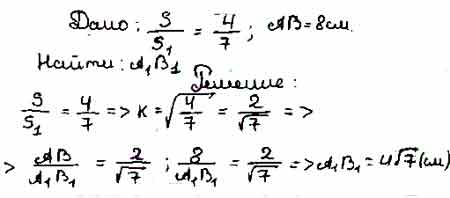 Дано: S/S₁ = 4/7; AB = 8см.
Найти: A₁B₁
Решение:
S/S₁ = 4/7 => K = √(4/7) = 2/√7 =>
> AB/A₁B₁ = 2/√7; 8/A₁B₁ = 2/√7 => A₁B₁ = 4√7 (см)